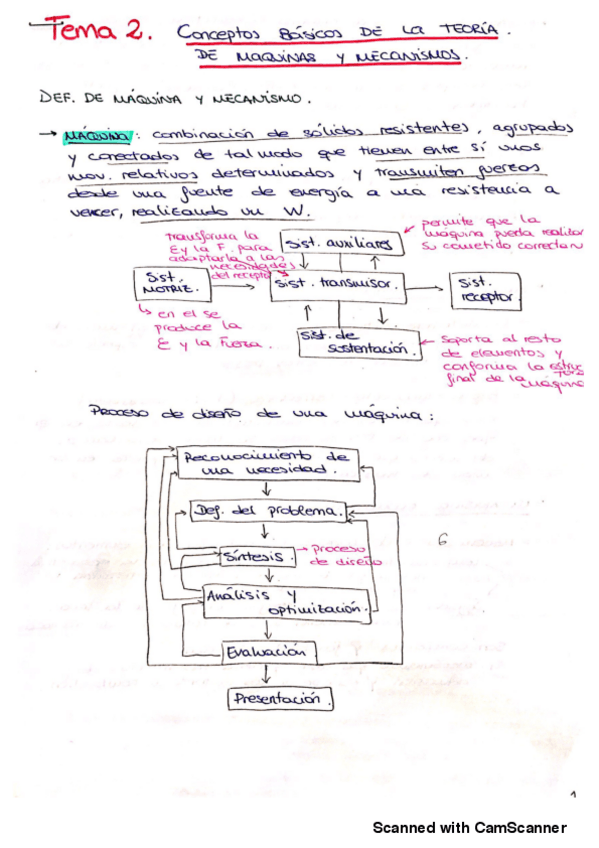 Tema 2. Conceptos Básicos DE LA TEORÍA.
DE MAQUINAS Y MECANISMOS.
DEF. DE MÁQUINA Y MECANISMO.
→ MÁQUINA: combinación de sólidos resistentes, agrupados
y conectados de tal modo que tienen entre sí unos
mov. relativos determinados y transmiten fuerzas
desde una fuente de energía a una resistencia a
vencer, realizando un W.
permite que la
máquina pueda realizar
su cometido correctam
transforma la
E y la F. para
adaptarla a las
necesidades
del recepto
Sist. auxiliares
Sist.
MOTRIZ.
Sist. transmisor.
Sist.
receptor.
en el se
produce la
E y la Fuerza.
Sist. de
sustentación.
Soporta al resto
de elementos y
conforma la estruc
tura
final de la máquina
Proceso de diseño de una máquina:
Reconocimiento de
una necesidad.
Def. del problema.
Síntesis.
→ Proceso
de diseño
6
Análisis y
optimización.
Evaluación
Presentación.
1
Scanned with CamScanner